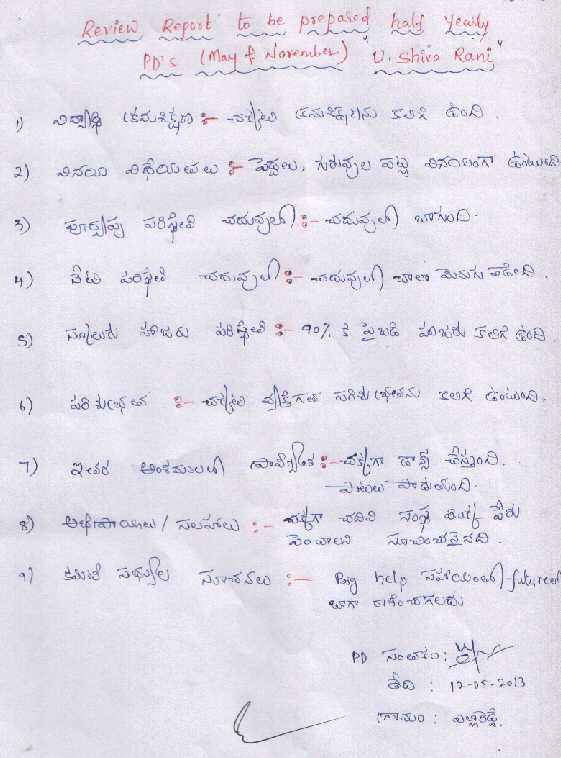 Review Report to be prepared half yearly
PD's (May & November) "U. Shiva Rani"
1) విద్యార్థి క్రమశిక్షణ :- చక్కటి క్రమశిక్షణను కలిగి ఉంది.
2) వినయ విధేయతలు :- పెద్దలు, గురువుల పట్ల వినయంగా ఉంటుంది
3) పూర్వపు పరిస్థితి చదువులో :- చదువులో బాగుంది.
4) నేటి పరిస్థితి చదువులో :- చదువులో చాలా మెరుగు పడింది.
5) స్కూలుకు హాజరు పరిస్థితి :- 90% కి పైబడి హాజరు కలిగి ఉంది.
6) పరిశుభ్రత :- చక్కటి వ్యక్తిగత పరిశుభ్రతను కలిగి ఉంటుంది.
7) ఇతర అంశములలో ప్రావీణ్యత :- చక్కగా డాన్స్ చేస్తుంది.
పాటలు పాడుతుంది.
8) అభిప్రాయాలు / సలహాలు :- చక్కగా చదివి సంస్థ యొక్క పేరు
పెంచాలని సూచించనైనది.
9) కమిటీ సభ్యుల సూచనలు :- Big help సహాయంతో future లో
బాగా రాణించగలదు
PD సంతకం :
తేది : 12-05-2013
గ్రామం : ఎల్లారెడ్డి.